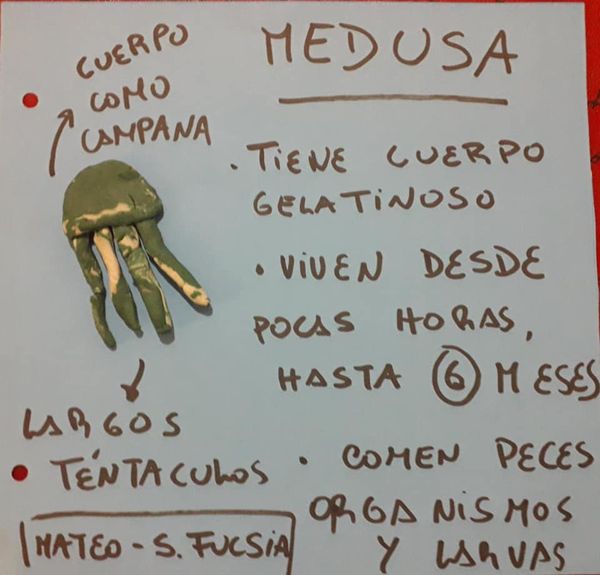 MEDUSA
CUERPO
COMO
CAMPANA
• TIENE CUERPO
GELATINOSO
• VIVEN DESDE
POCAS HORAS,
HASTA 6 MESES
LARGOS
TÉNTACULOS
• COMEN PECES
ORGANISMOS
Y LARVAS
MATEO - S. FUCSIA